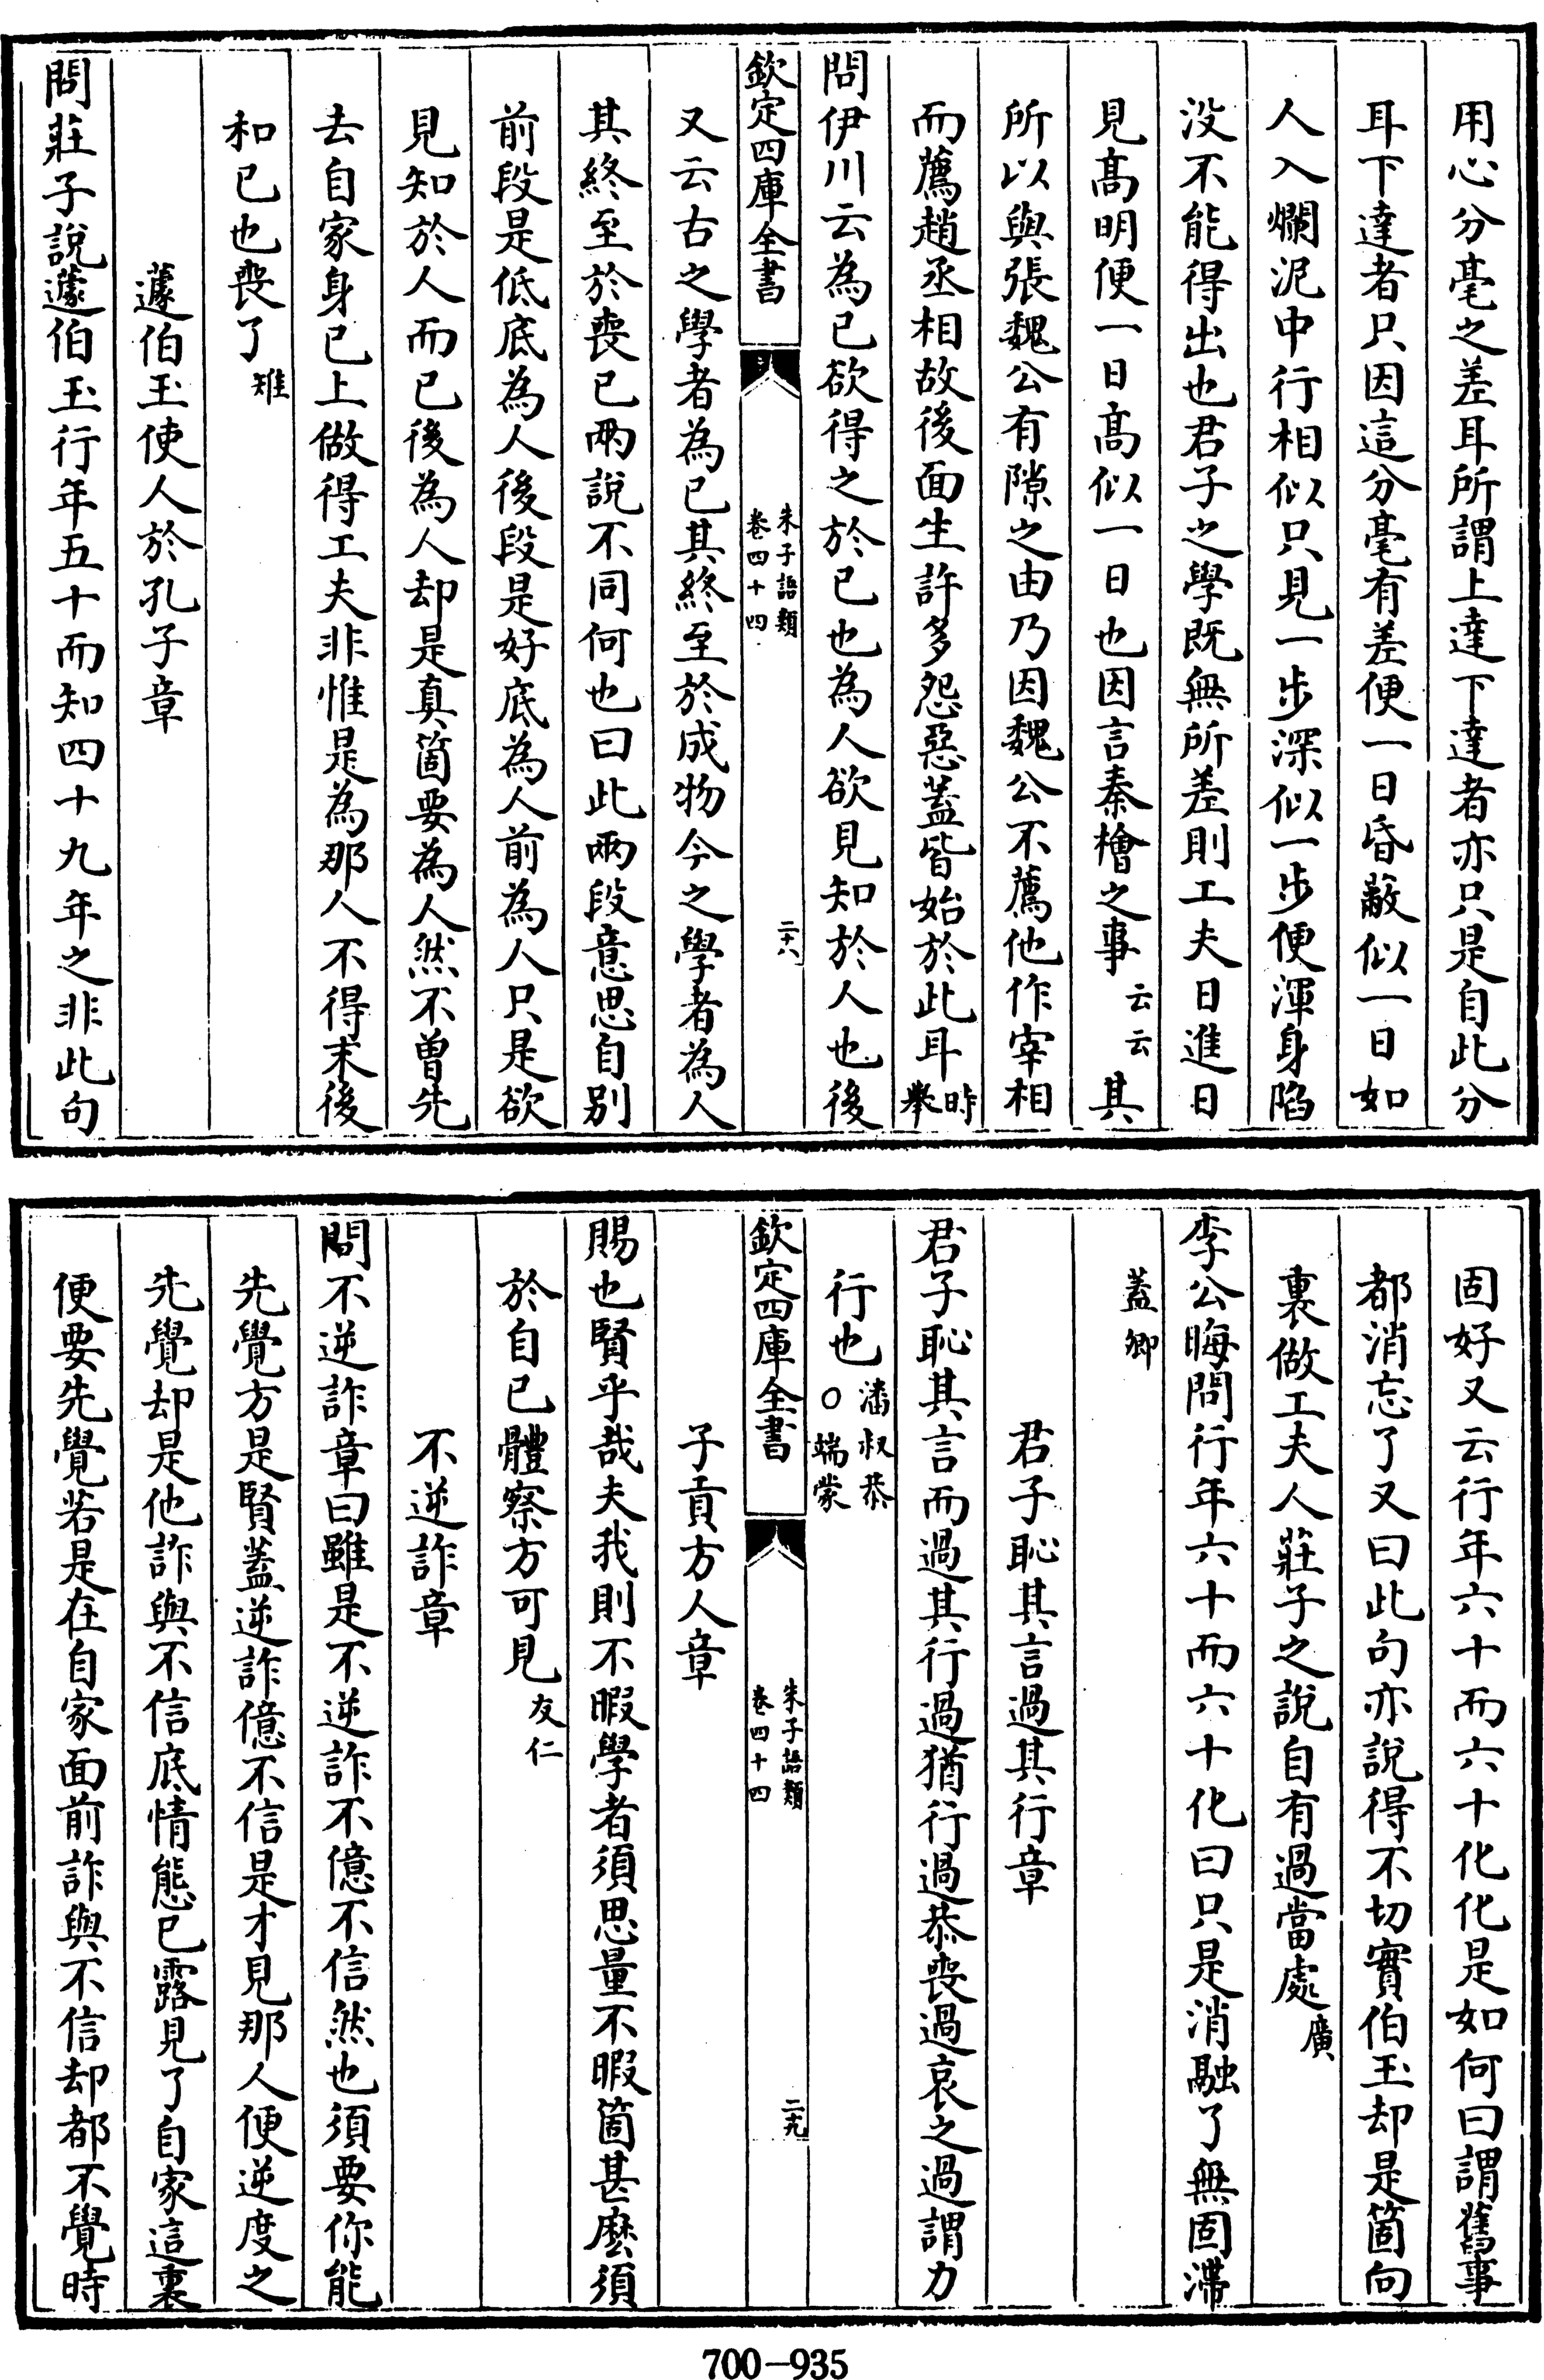 用心分毫之差耳所謂上達下達者亦只是自此分
耳下達者只因這分毫有差便一日昏蔽似一日如
人入爛泥中行相似只見一步深似一步便渾身陷
没不能得出也君子之學既無所差則工夫日進日
見髙明便一日髙似一日也因言秦檜之事云云其
所以與張魏公有隙之由乃因魏公不薦他作宰相
而薦趙丞相故後面生許多怨惡蓋皆始於此耳時舉
問伊川云為已欲得之於已也為人欲見知於人也後
欽定四庫全書
朱子語類
卷四十四
二十八
又云古之學者為已其終至於成物今之學者為人
其終至於喪已兩說不同何也曰此兩段意思自别
前段是低底為人後段是好底為人前為人只是欲
見知於人而已後為人却是真箇要為人然不曾先
去自家身已上做得工夫非惟是為那人不得末後
和已也喪了雉
蘧伯玉使人於孔子章
問莊子說蘧伯玉行年五十而知四十九年之非此句
固好又云行年六十而六十化化是如何曰謂舊事
都消忘了又曰此句亦說得不切實伯玉却是箇向
裏做工夫人莊子之說自有過當處廣
李公晦問行年六十而六十化曰只是消融了無固滯
蓋卿
君子恥其言過其行章
君子恥其言而過其行行過猶行過恭喪過哀之過謂力
行也潘叔恭
○端蒙
欽定四庫全書
朱子語類
卷四十四
二十九
子貢方人章
賜也賢乎哉夫我則不暇學者須思量不暇箇甚麽須
於自已體察方可見友仁
不逆詐章
問不逆詐章曰雖是不逆詐不億不信然也須要你能
先覺方是賢蓋逆詐億不信是才見那人便逆度之
先覺却是他詐與不信底情態已露見了自家這裏
便要先覺若是在自家面前詐與不信却都不覺時
700-935